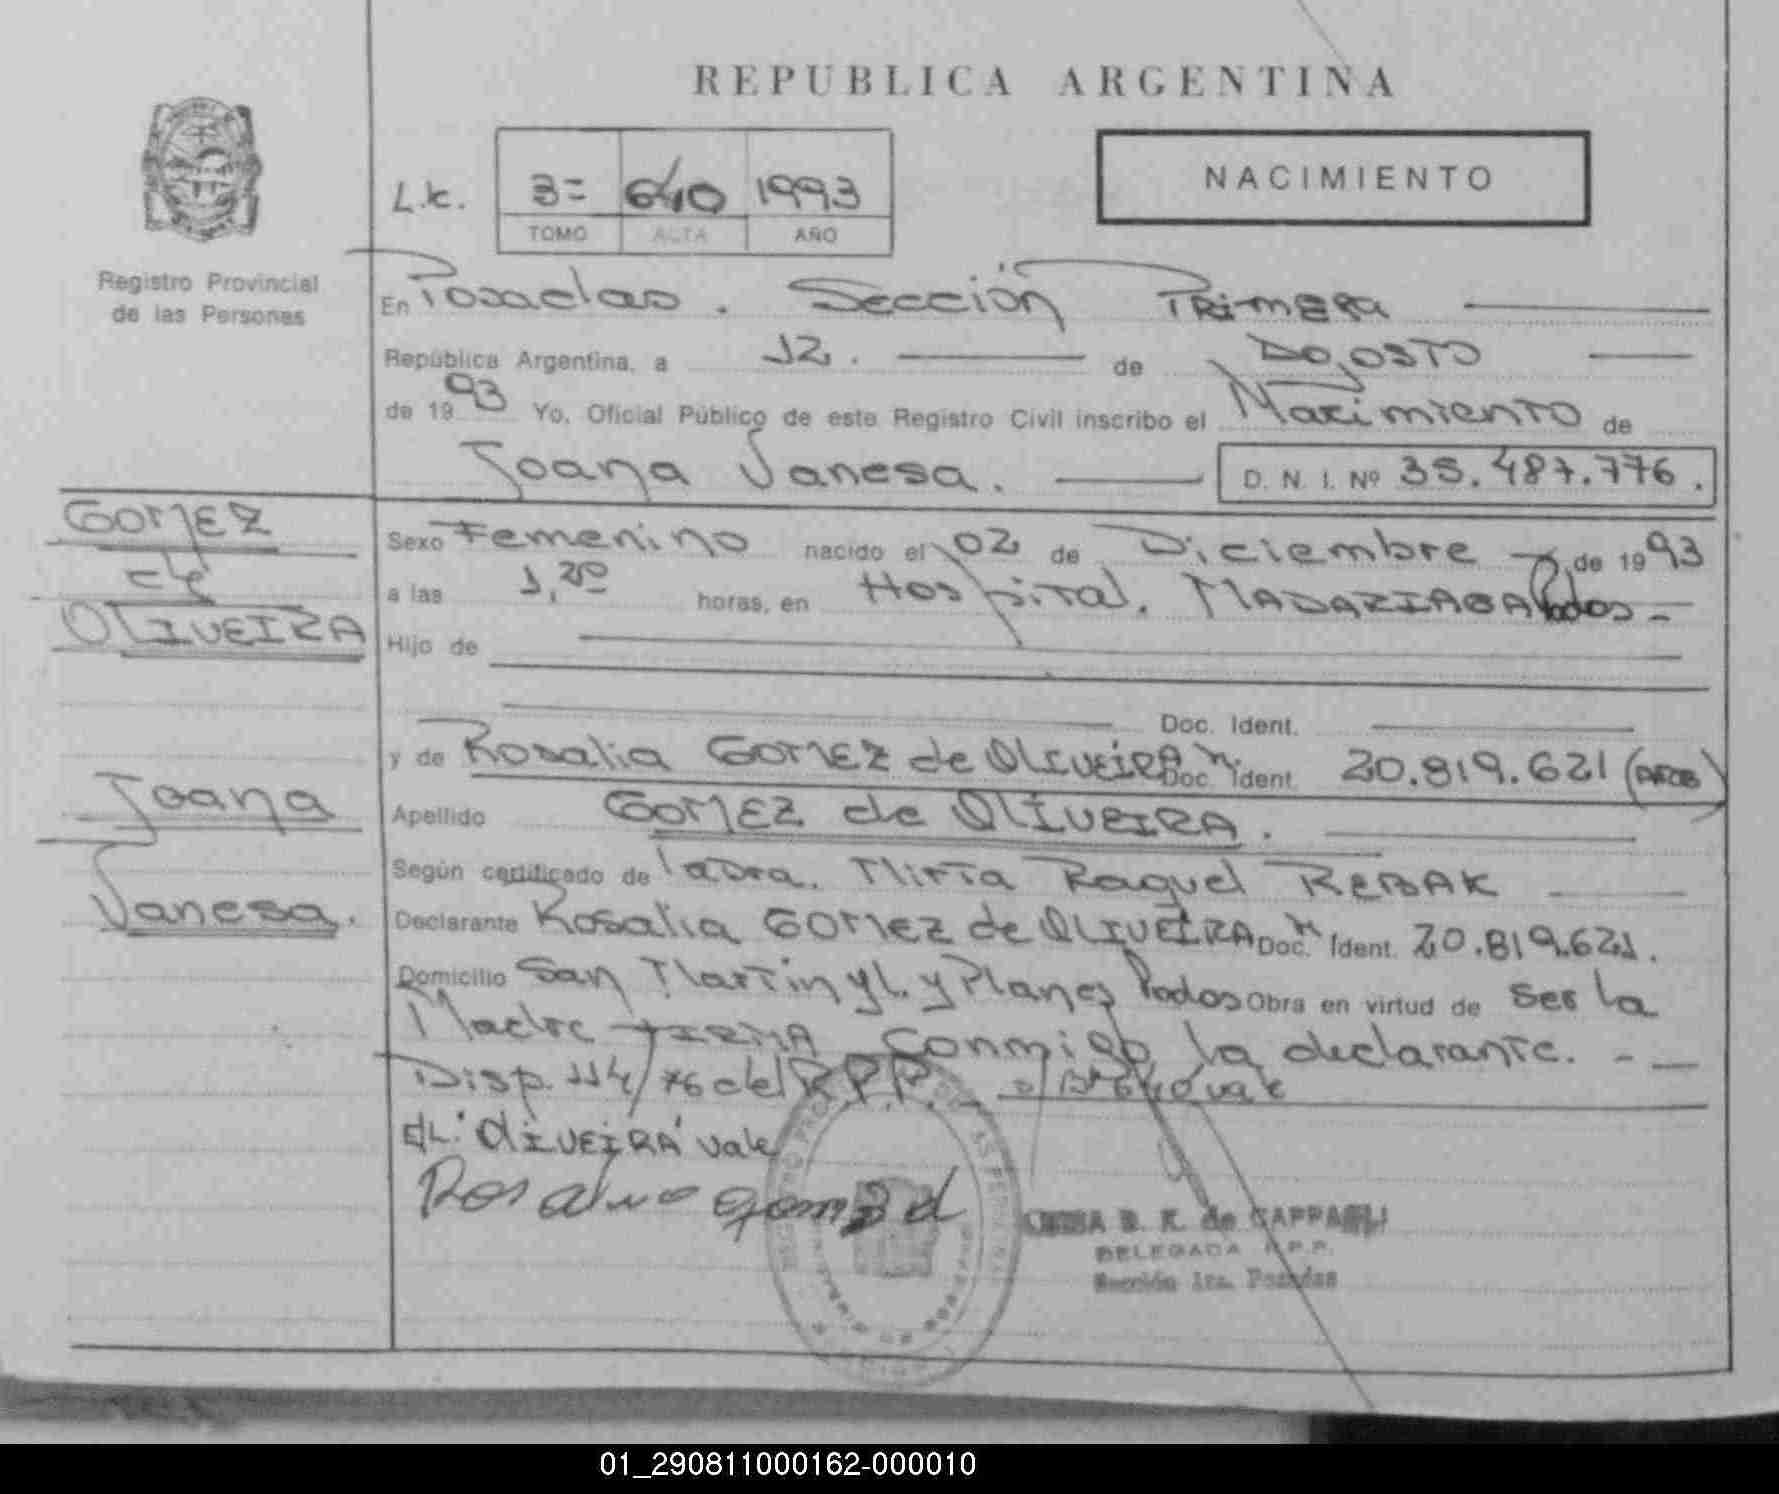 REPUBLICA ARGENTINA
L.c. 3= 640 1993
TOMO ACTA AÑO
NACIMIENTO
Registro Provincial
de las Personas
En Posadas. Sección Primera
República Argentina, a 12. de Agosto
de 1993 Yo, Oficial Público de este Registro Civil inscribo el Nacimiento de
Joana Vanesa. D. N. I. Nº 35.487.776.
GOMEZ
de
OLIVEIRA
Joana
Vanesa.
Sexo Femenino nacido el 02 de Diciembre de 1993
a las 1,20 horas, en Hospital. MADARIAGA Pdos -
Hijo de
Doc. Ident.
y de Rosalia GOMEZ de OLIVEIRA Doc. Ident. 20.819.621
Apellido GOMEZ de OLIVEIRA.
Según certificado de la Dra. Mirta Raquel REBAK
Declarante Rosalia GOMEZ de OLIVEIRA Doc. Ident. 20.819.621.
Domicilio San Martin y L. y Planes Pdos Obra en virtud de ser la
Madre FIRMA Conmigo la declarante. -
Disp. 114/76 del R.P.P. 640 vale
EL: OLIVEIRA vale
B. K. de CAPPA
DELEGADA R.P.P.
Sección 1ra. Posadas
01_290811000162-000010